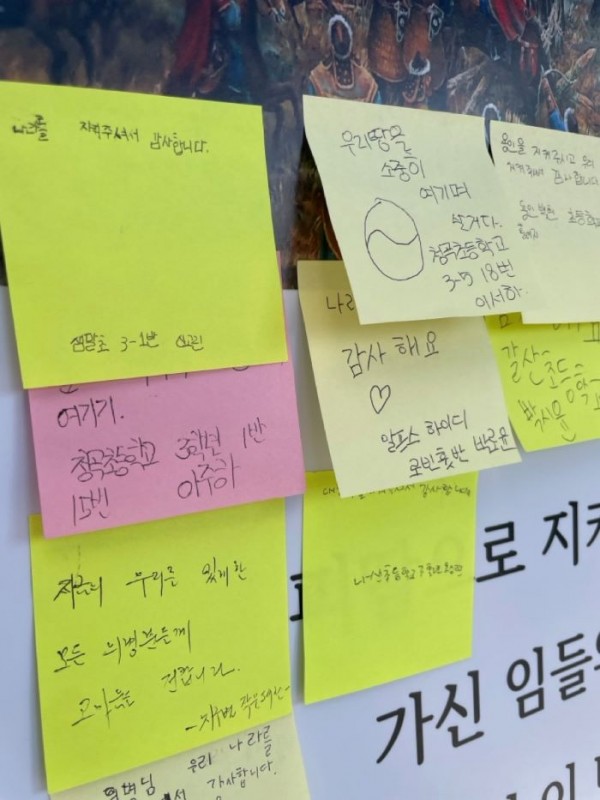 나라를 지켜주셔서 감사합니다.
샘말초 3-1반
우리땅을
소중히
여기며
살거다.
청곡초등학교
3-5 18번
이서하.
용인을 지켜주시고 우리
지켜주셔서 감사합니다
초등학교
나라
감사 해요
♡
알프스 하이디
로빈훗반 박로운
갈산초등학
박시윤
여기기.
청곡초등학교 3학년 1반
15번 이주하
지금의 우리를 있게한
모든 의병분들께
고마움을 전합니다.
감사합니다
로 지켜
가신 임들의
의병님 우리 나라를
감사합니다.